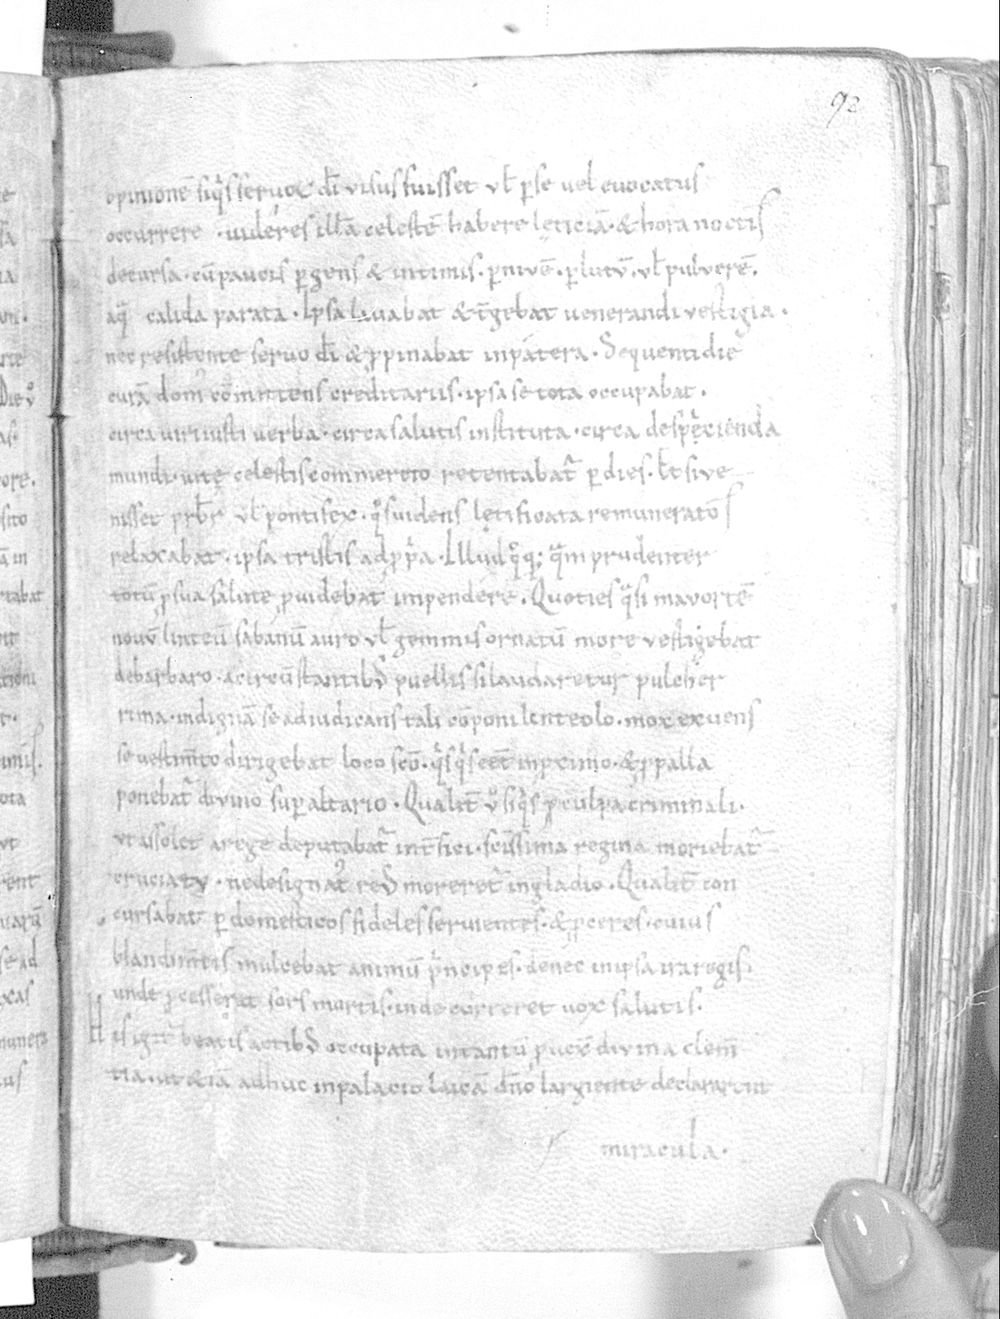 92
opinionē siq̄s servoꝝ dī visus fuisset vl̄ ꝑ se vel evocatus
occurrere · videres illā celestē habere lęticiā · & hora noctis
decursa · cū paucis ꝑgens & intimis · ꝑ nivē · ꝑ lutū · vl̄ pulverē ·
aq̄ calida parata · Ipsa lavabat & t̄gebat venerandi vestigia ·
nec resistente servo dī & ꝓpinabat in patera · Sequenti die
curā dom̄ cōmittens creditariis · ipsa se tota occupabat ·
circa viri iusti verba · circa salutis instituta · circa
mundi · vitę celestis commercio retentabat᷑ ꝑ dies · &
nisset prb̄r vl̄ pontifex · videns lętificata remunerato
relaxabat · ipsa tristis ad ꝓp̄a · Illud q̊q; q̄m prudenter
totū ꝓ sua salute ꝓvidebat impendere · Quoties q̄si mavortē
novū linteū sabanū auro vl̄ gemmis ornatū more vestigebat
de barbaro · a circūstantib; puellis si laudaretur pulcher
rima · indignā se adiudicans tali cōponi lenteolo · mox exuens
se vestim̄to dirigebat loco scō · q̄s eēt in ꝓximo · & ꝓ palla
ponebat᷑ divino suꝑ altario · Qualit̄ v̊ siq̄s ꝓ culpa criminali ·
ut assolet a rege deputabat᷑ int̄fici · scīssima regina moriebat᷑
cruciatu · ne designat᷒ reus moreret᷑ in gladio · Qualit̄ con
cursabat ꝑ domesticos fideles servientes · & ꝓceres · cuius
blandim̄tis mulcebat animū p̄ncipes · donec in ipsa ira regis ·
unde ꝓcesserat sors mortis · inde curreret vox salutis ·
His igit᷑ beatis actib; occupata in tantū ꝓvexit divina clem̄
tia · ut &iā adhuc in palacio laicā dn̄o largiente declararent
miracula ·